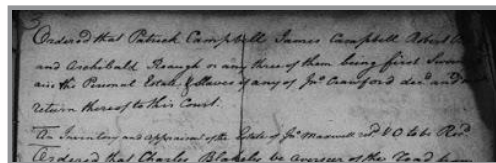 Ordered that Patrick Campbell James Campbell Robert
and Archibald Reaugh or any three of them being first Sworn
ais the Personal Estate & Slaves if any of Jno. Crawford decd. and
return thereof to this Court.
An Inventory and appraisment of the Estate of Jno. Maxwell retd. & O to be Recd.
Ordered that Charles Blakeley be overseer of the Road